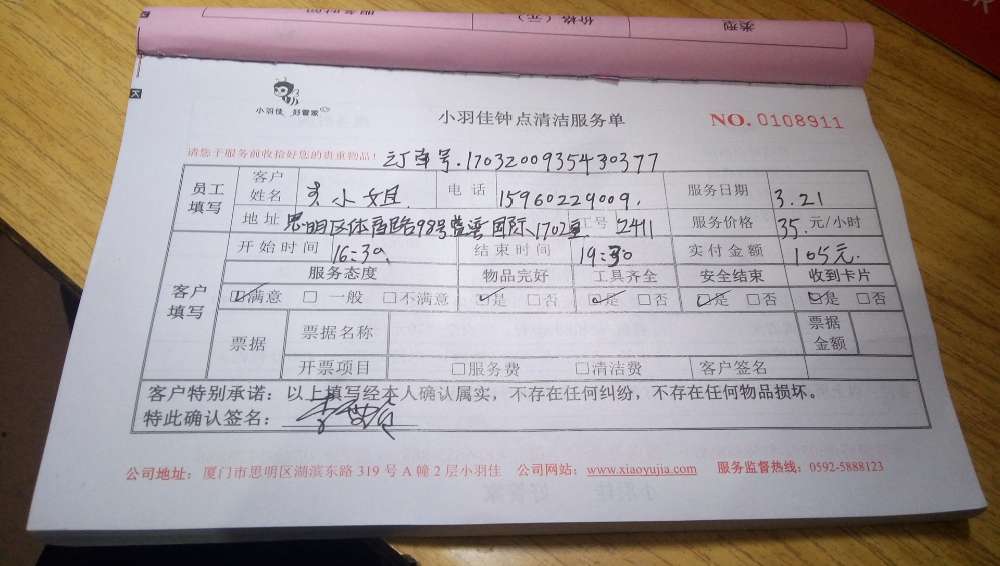 服务时间 价格（元） 类型
小羽佳 好管家
小羽佳钟点清洁服务单 NO. 0108911
请您于服务前收拾好您的贵重物品！ 订单号.1703200935430377
员工填写 客户姓名 小姐 电话 15960229009. 服务日期 3.21
地址 思明区体育路98号 国际1702室 工号 2411 服务价格 35.元/小时
开始时间 16:30 结束时间 19:30 实付金额 105元.
客户填写 服务态度 物品完好 工具齐全 安全结束 收到卡片
☑满意 □一般 □不满意 ☑是 □否 ☑是 □否 ☑是 □否 ☑是 □否
票据 票据名称 票据金额
开票项目 □服务费 □清洁费 客户签名
客户特别承诺：以上填写经本人确认属实，不存在任何纠纷，不存在任何物品损坏。
特此确认签名：
公司地址：厦门市思明区湖滨东路 319 号 A 幢 2 层小羽佳 公司网站：www.xiaoyujia.com 服务监督热线：0592-5888123